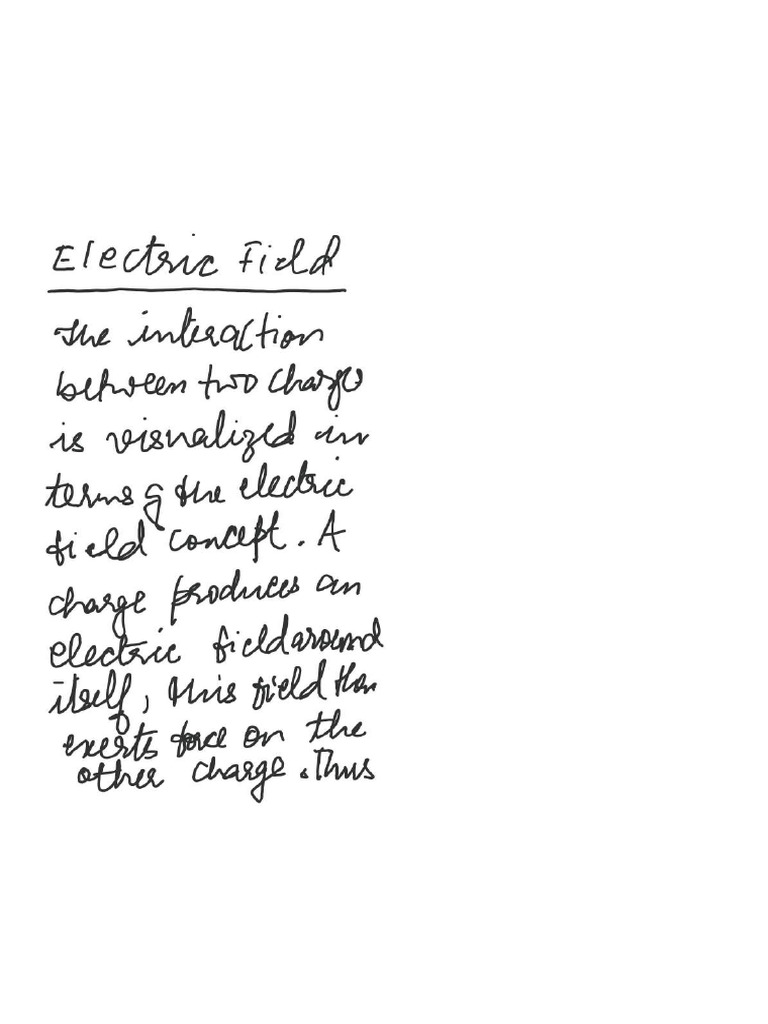 Electric Field
The interaction
between two charges
is visualized in
terms of the electric
field concept. A
charge produces an
electric field around
itself, this field then
exerts force on the
other charge. Thus